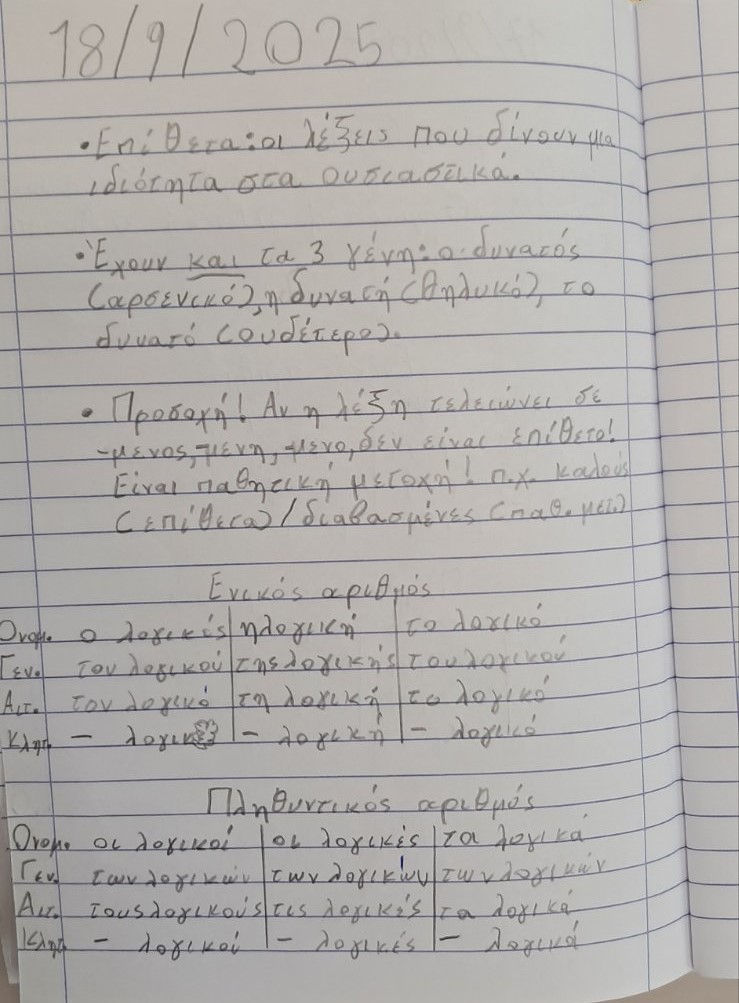 18/9/2025
• Επίθετα: οι λέξεις που δίνουν μια
ιδιότητα στα ουσιαστικά.
• Έχουν και τα 3 γένη: ο δυνατός
(αρσενικό), η δυνατή (θηλυκό), το
δυνατό (ουδέτερο).
• Προσοχή! Αν η λέξη τελειώνει σε
-μενος, -μενη, -μενο, δεν είναι επίθετο!
Είναι παθητική μετοχή! π.χ. καλούς
(επίθετα) / διαβασμένες (παθ. μετ.)
Ενικός αριθμός
Ονομ. ο λογικός | η λογική | το λογικό
Γεν. του λογικού | της λογικής | του λογικού
Αιτ. τον λογικό | τη λογική | το λογικό
Κλητ. - | - λογική | - λογικό
Πληθυντικός αριθμός
Ονομ. οι λογικοί | οι λογικές | τα λογικά
Γεν. των λογικών | των λογικών | των λογικών
Αιτ. τους λογικούς | τις λογικές | τα λογικά
Κλητ - λογικοί | - λογικές | - λογικά